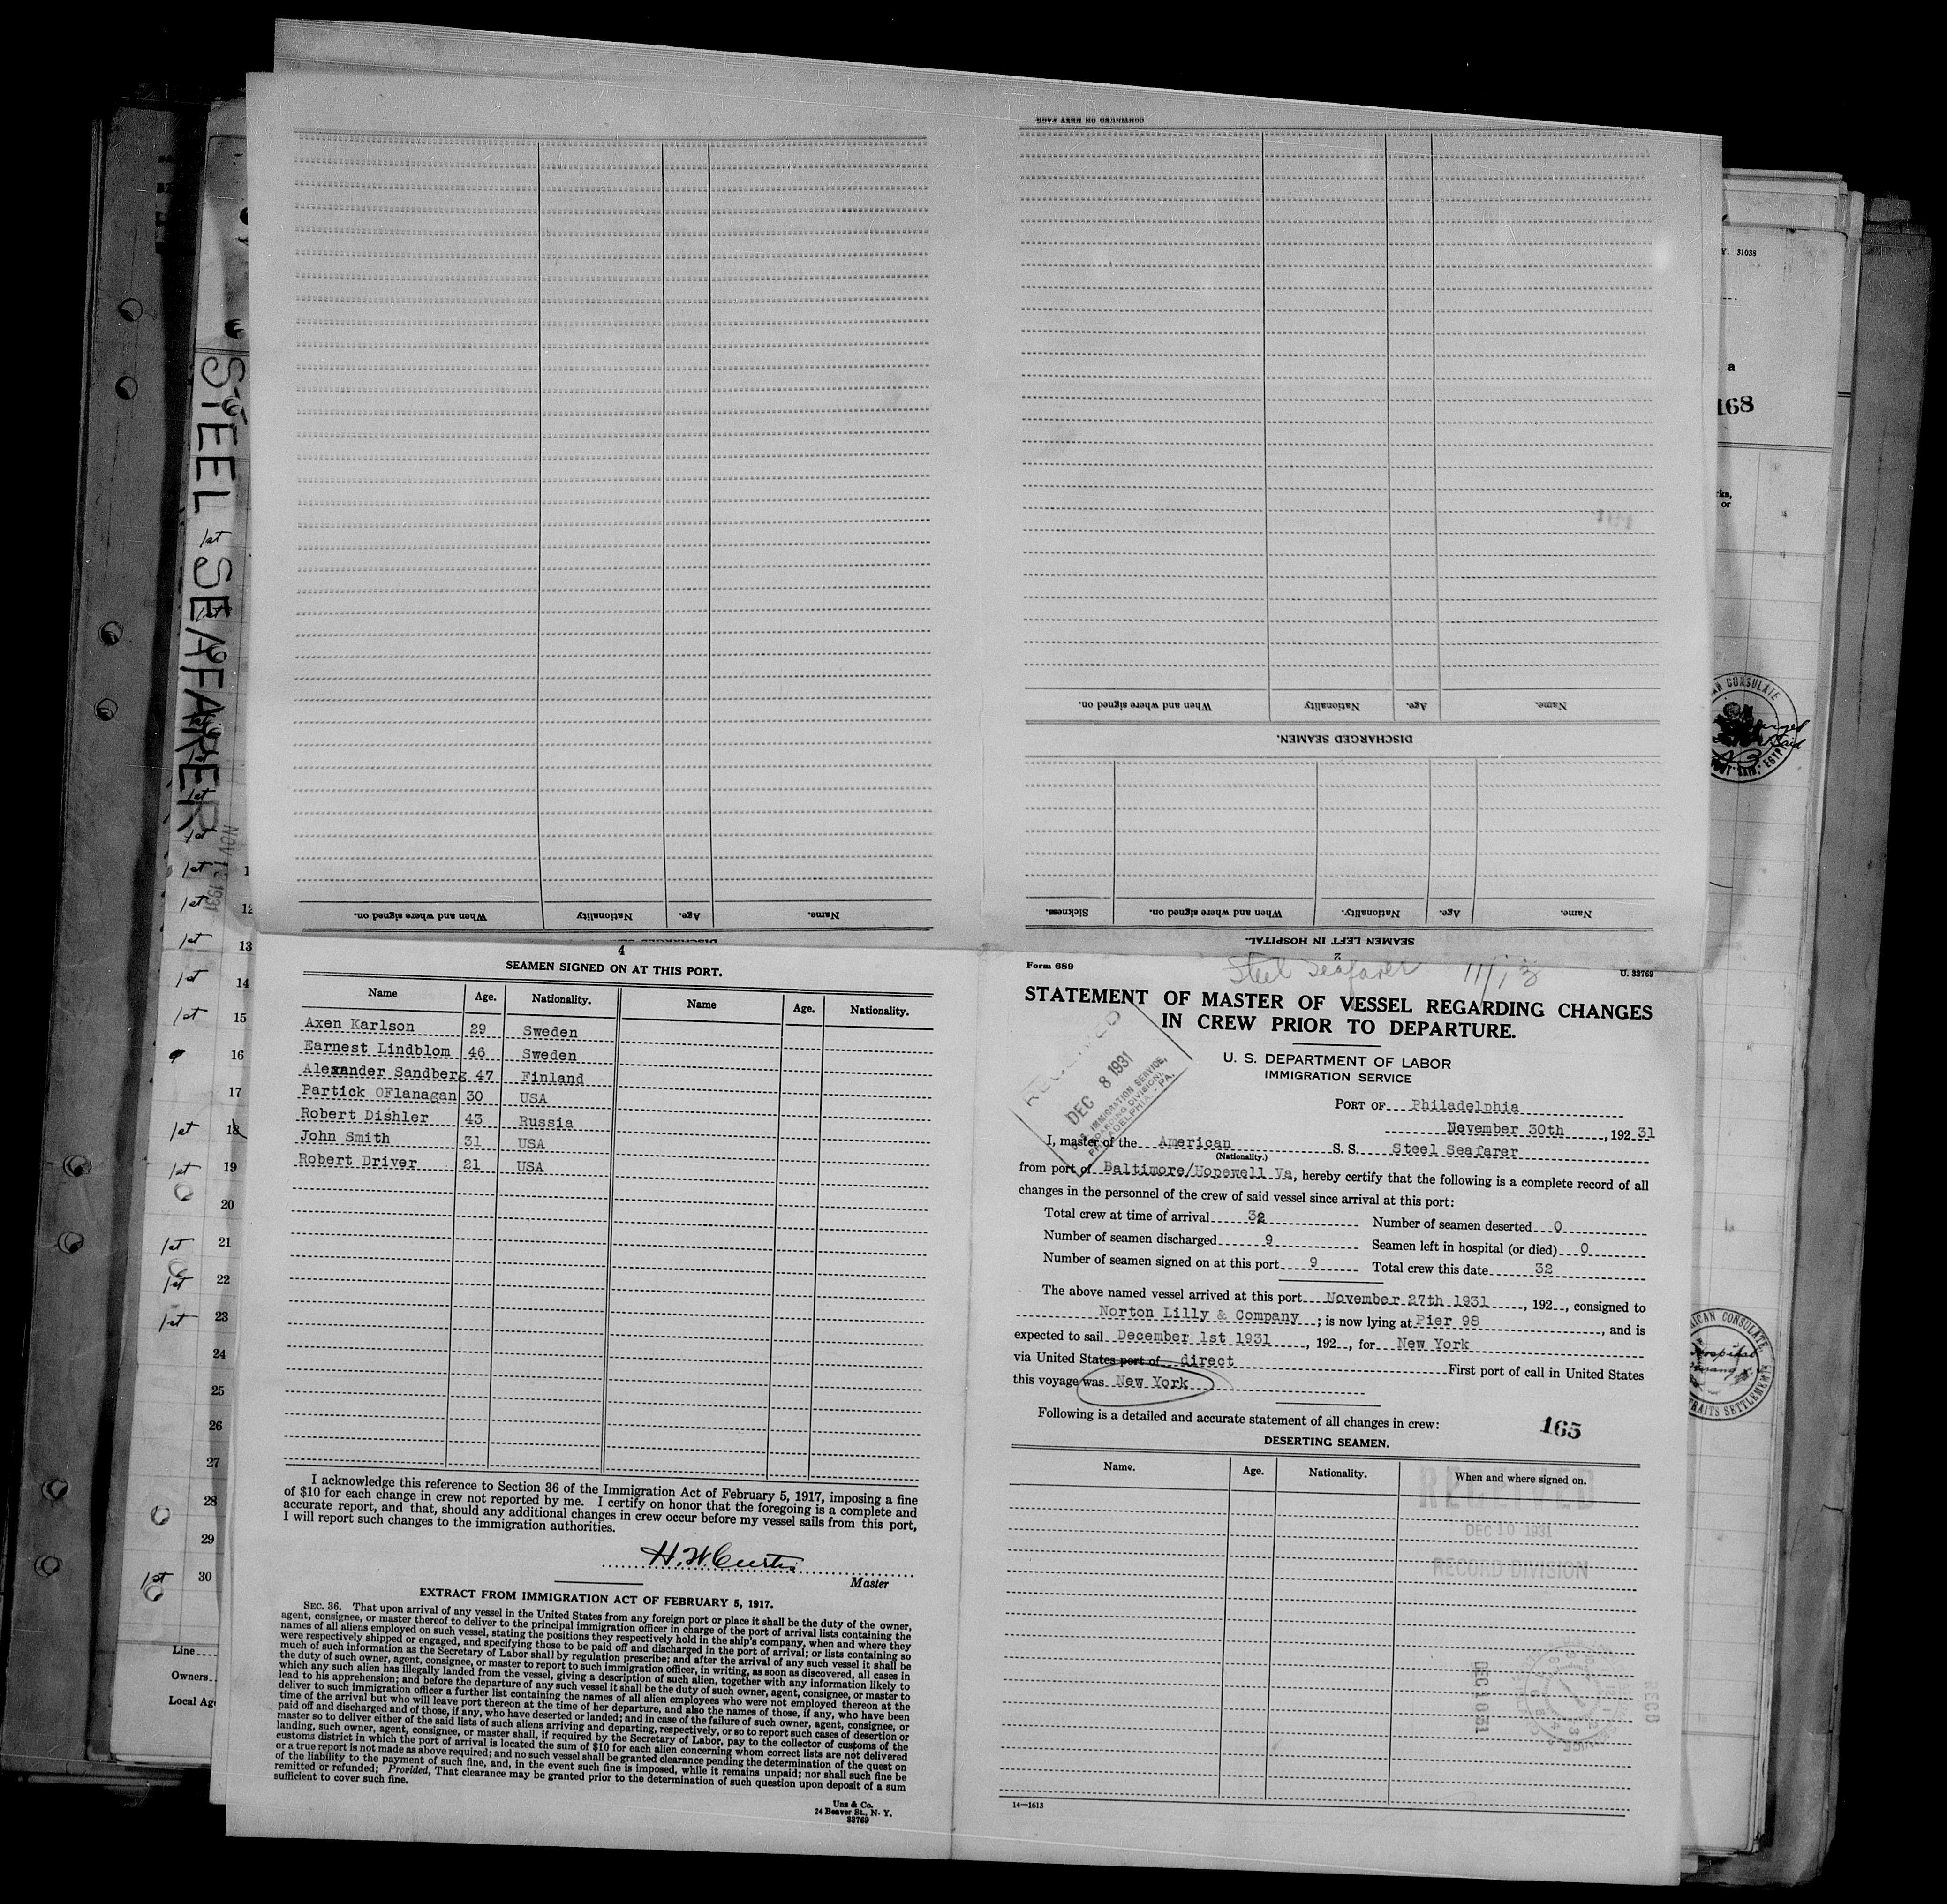 CONTINUED ON NEXT PAGE
When and where signed on.
Nationality
Age.
Name.
DISCHARGED SEAMEN.
Sickness.
When and where signed on.
Nationality.
Age.
Name.
SEAMEN LEFT IN HOSPITAL.
2
When and where signed on.
Nationality
Age.
Name.
STEEL SEAFARER
4
SEAMEN SIGNED ON AT THIS PORT.
Name Age. Nationality. Name Age. Nationality.
Axen Karlson 29 Sweden
Earnest Lindblom 46 Sweden
Alexander Sandberg 47 Finland
Partick OFlanagan 30 USA
Robert Dishler 43 Russia
John Smith 31 USA
Robert Driver 21 USA
I acknowledge this reference to Section 36 of the Immigration Act of February 5, 1917, imposing a fine
of $10 for each change in crew not reported by me. I certify on honor that the foregoing is a complete and
accurate report, and that, should any additional changes in crew occur before my vessel sails from this port,
I will report such changes to the immigration authorities.
H. W. Curtis
Master
EXTRACT FROM IMMIGRATION ACT OF FEBRUARY 5, 1917.
SEC. 36. That upon arrival of any vessel in the United States from any foreign port or place it shall be the duty of the owner,
agent, consignee, or master thereof to deliver to the principal immigration officer in charge of the port of arrival lists containing the
names of all aliens employed on such vessel, stating the positions they respectively hold in the ship's company, when and where they
were respectively shipped or engaged, and specifying those to be paid off and discharged in the port of arrival; or lists containing so
much of such information as the Secretary of Labor shall by regulation prescribe; and after the arrival of any such vessel it shall be
the duty of such owner, agent, consignee, or master to report to such immigration officer, in writing, as soon as discovered, all cases in
which any such alien has illegally landed from the vessel, giving a description of such alien, together with any information likely to
lead to his apprehension; and before the departure of any such vessel it shall be the duty of such owner, agent, consignee, or master to
deliver to such immigration officer a further list containing the names of all alien employees who were not employed thereon at the
time of the arrival but who will leave port thereon at the time of her departure, and also the names of those, if any, who have been
paid off and discharged and of those, if any, who have deserted or landed; and in case of the failure of such owner, agent, consignee, or
master so to deliver either of the said lists of such aliens arriving and departing, respectively, or so to report such cases of desertion or
landing, such owner, agent, consignee, or master shall, if required by the Secretary of Labor, pay to the collector of customs of the
customs district in which the port of arrival is located the sum of $10 for each alien concerning whom correct lists are not delivered
or a true report is not made as above required; and no such vessel shall be granted clearance pending the determination of the quest on
of the liability to the payment of such fine, and, in the event such fine is imposed, while it remains unpaid; nor shall such fine be
remitted or refunded; Provided, That clearance may be granted prior to the determination of such question upon deposit of a sum
sufficient to cover such fine.
Unz & Co.
24 Beaver St., N. Y.
33769
Form 689
Steel Seafarer
U. 33769
STATEMENT OF MASTER OF VESSEL REGARDING CHANGES
IN CREW PRIOR TO DEPARTURE.
U. S. DEPARTMENT OF LABOR
IMMIGRATION SERVICE
RECEIVED
DEC 8 1931
U.S. IMMIGRATION SERVICE,
(BOARDING DIVISION),
PHILADELPHIA, - PA.
PORT OF Philadelphia
November 30th , 192 31
I, master of the American S. S. Steel Seafarer
(Nationality.)
from port of Baltimore/Hopewell Va, hereby certify that the following is a complete record of all
changes in the personnel of the crew of said vessel since arrival at this port:
Total crew at time of arrival 32 Number of seamen deserted 0
Number of seamen discharged 9 Seamen left in hospital (or died) 0
Number of seamen signed on at this port 9 Total crew this date 32
The above named vessel arrived at this port November 27th 1931 , 192 , consigned to
Norton Lilly & Company ; is now lying at Pier 98 , and is
expected to sail December 1st 1931 , 192 , for New York
via United States port of direct First port of call in United States
this voyage was New York
Following is a detailed and accurate statement of all changes in crew:
165
DESERTING SEAMEN.
Name. Age. Nationality. When and where signed on.
RECEIVED
DEC 10 1931
RECORD DIVISION
DEC 10 31
RECD
14—1613
13
14
15
16
17
18
19
20
21
22
23
24
25
26
27
28
29
30
Line
Owners
Local Ag
31038
a
168
ks,
or